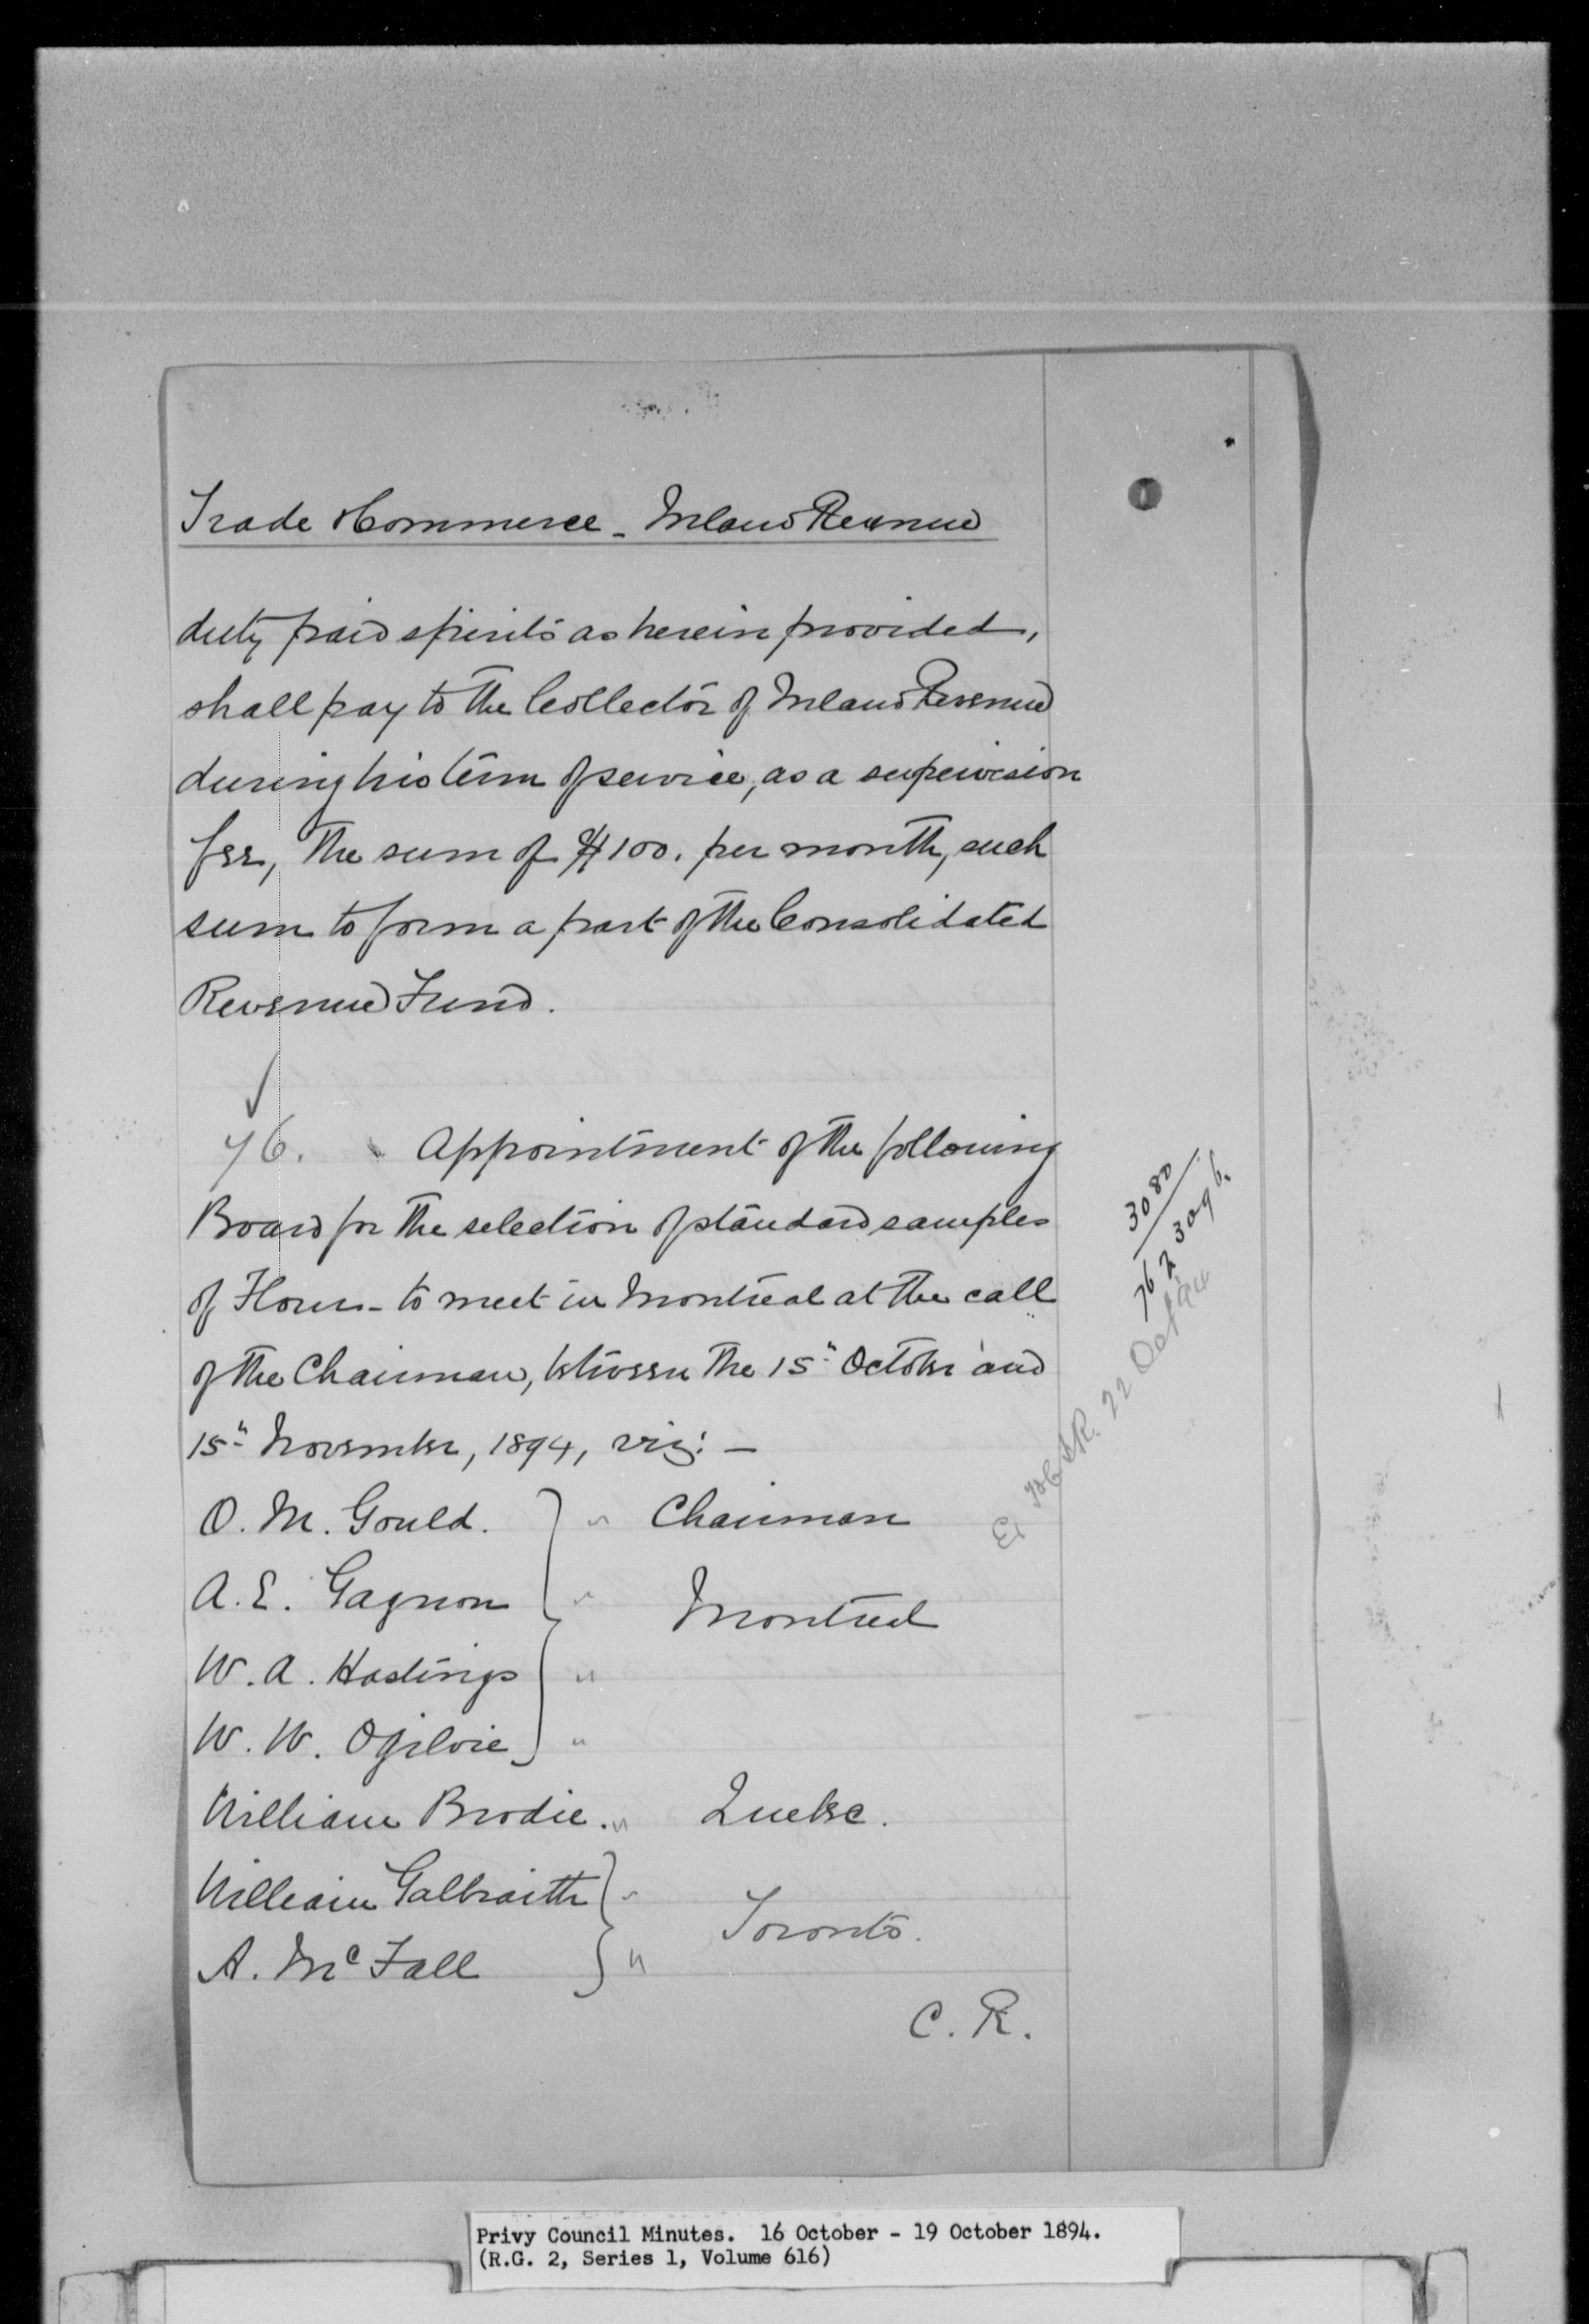 Trade & Commerce - Inland Revenue
duty paid spirits as herein provided,
shall pay to the Collector of Inland Revenue
during his term of service, as a supervision
fee, the sum of $100. per month, such
sum to form a part of the Consolidated
Revenue Fund.
76. Appointment of the following
Board for the selection of standard samples
of Flour - to meet in Montreal at the call
of the Chairman, between the 15" October and
15" November, 1894, viz: -
O. M. Gould. } " Chairman
A. E. Gagnon } " Montreal
W. A. Hastings } "
W. W. Ogilvie } "
William Brodie. " Quebec.
William Galbraith } " Toronto.
A. McFall } "
C. R.
3080
76 2 3096
22 Oct 94
Privy Council Minutes. 16 October - 19 October 1894.
(R.G. 2, Series 1, Volume 616)